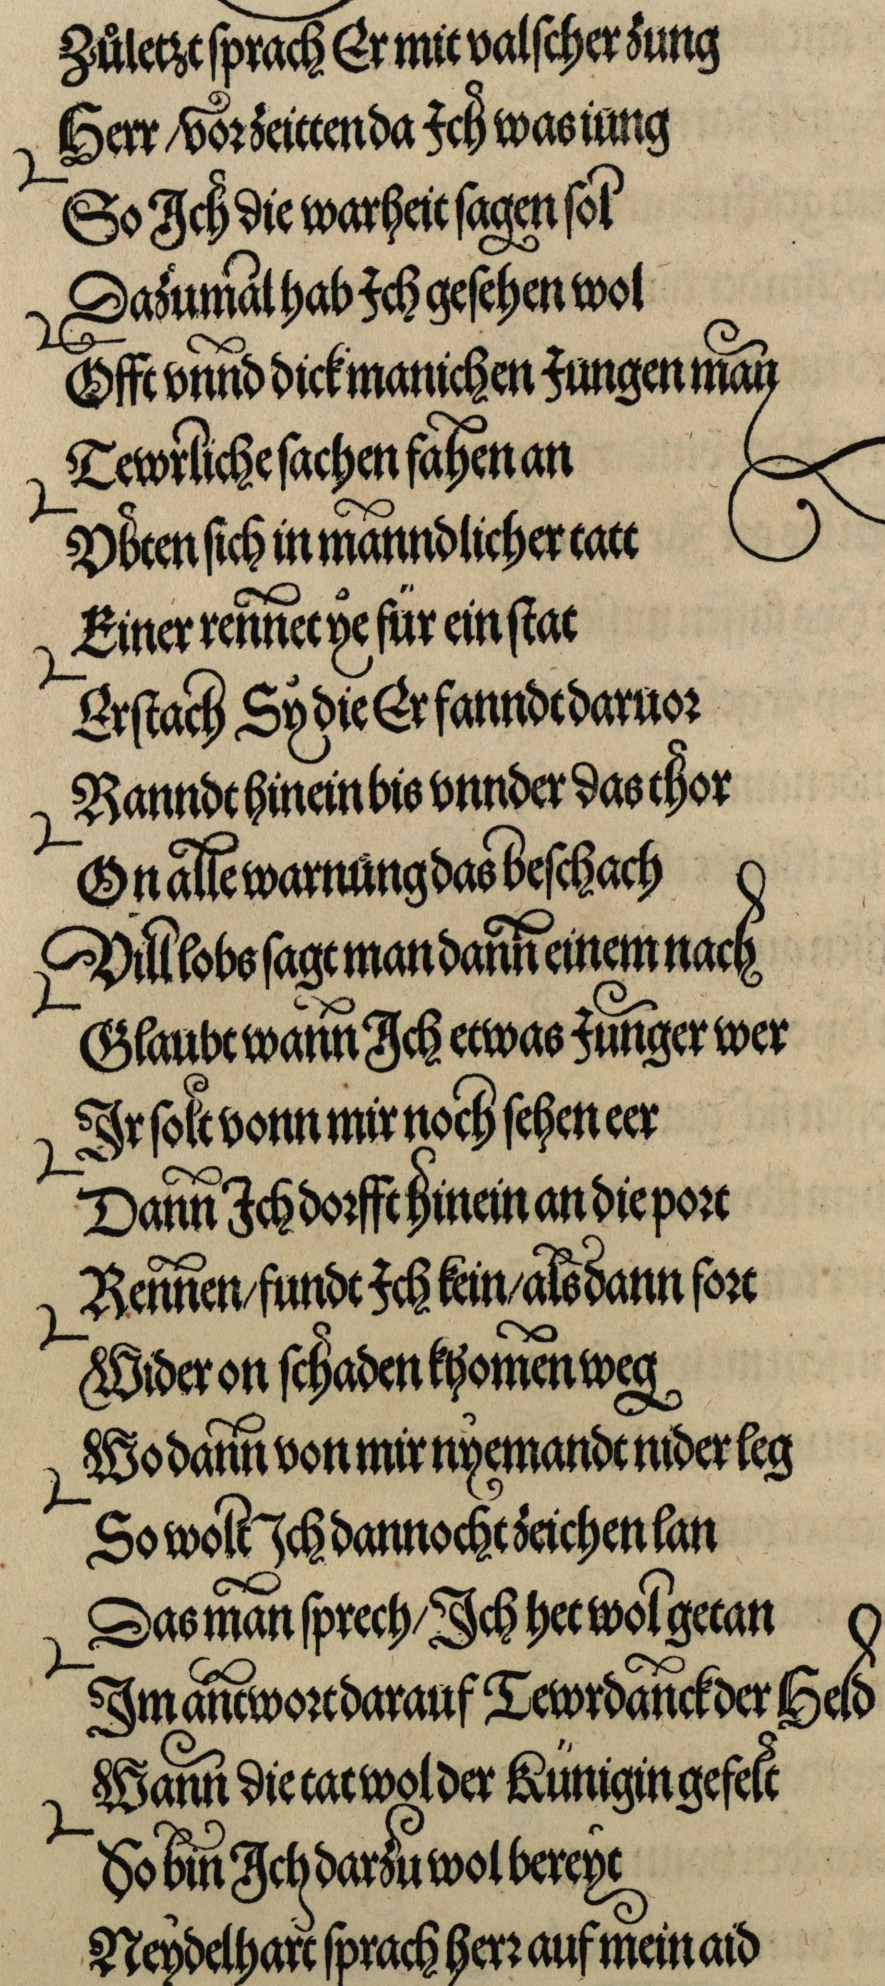 Zůletzt sprach Er mit valscher zung
Herr / vorzeitten da Ich was iung
So Ich die warheit sagen sol
Dazumal hab Ich gesehen wol
Offt vnnd dick manichen Jungen man
Tewrliche sachen fahen an
Vbten sich in manndlicher tatt
Einer rennet ye für ein stat
Erstach Sy die Er fanndt daruor
Ranndt hinein bis vnnder das thor
On alle warnung das beschach
Vill lobs sagt man dann einem nach
Glaubt wann Ich etwas Junger wer
Ir solt vonn mir noch sehen eer
Dann Ich dorfft hinein an die port
Rennen / fundt Ich kein / als dann fort
Wider on schaden khomen weg
Wo dann von mir nyemandt nider leg
So wolt Ich dannocht zeichen lan
Das man sprech / Ich het wol getan
Im antwort darauf Tewrdanck der Held
Wann die tat wol der Künigin gefelt
So bin Ich darzu wol bereyt
Neydelhart sprach herr auf mein aid